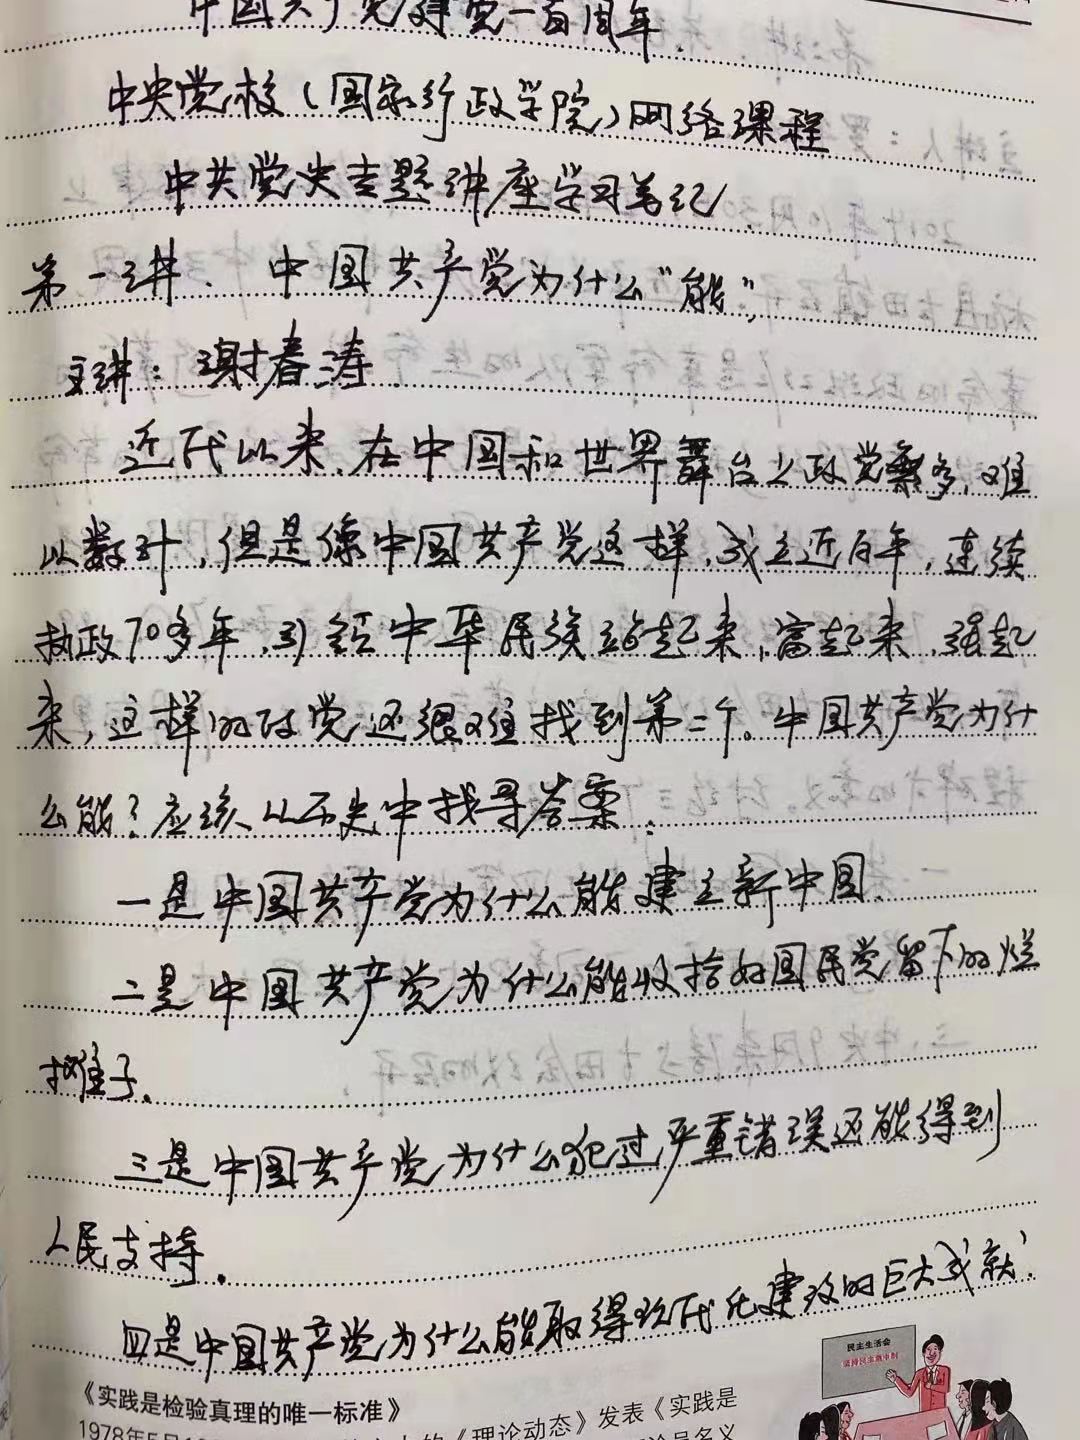 中国共产党建党一百周年.
中央党校(国家行政学院)网络课程
中共党史专题讲座学习笔记
第一讲. 中国共产党为什么"能"
主讲: 谢春涛
近代以来,在中国和世界舞台上政党繁多,难
以数计,但是像中国共产党这样,成立近百年,连续
执政70多年,引领中华民族站起来,富起来,强起
来,这样的政党还很难找到第二个。中国共产党为什
么能?应该从历史中找寻答案:
一是中国共产党为什么能建立新中国.
二是中国共产党为什么能收拾好国民党留下的烂
摊子.
三是中国共产党为什么犯过严重错误还能得到
人民支持.
四是中国共产党为什么能取得现代化建设的巨大成就.
民主生活会
坚持民主集中制
《实践是检验真理的唯一标准》
1978年5月1 的《理论动态》发表《实践是